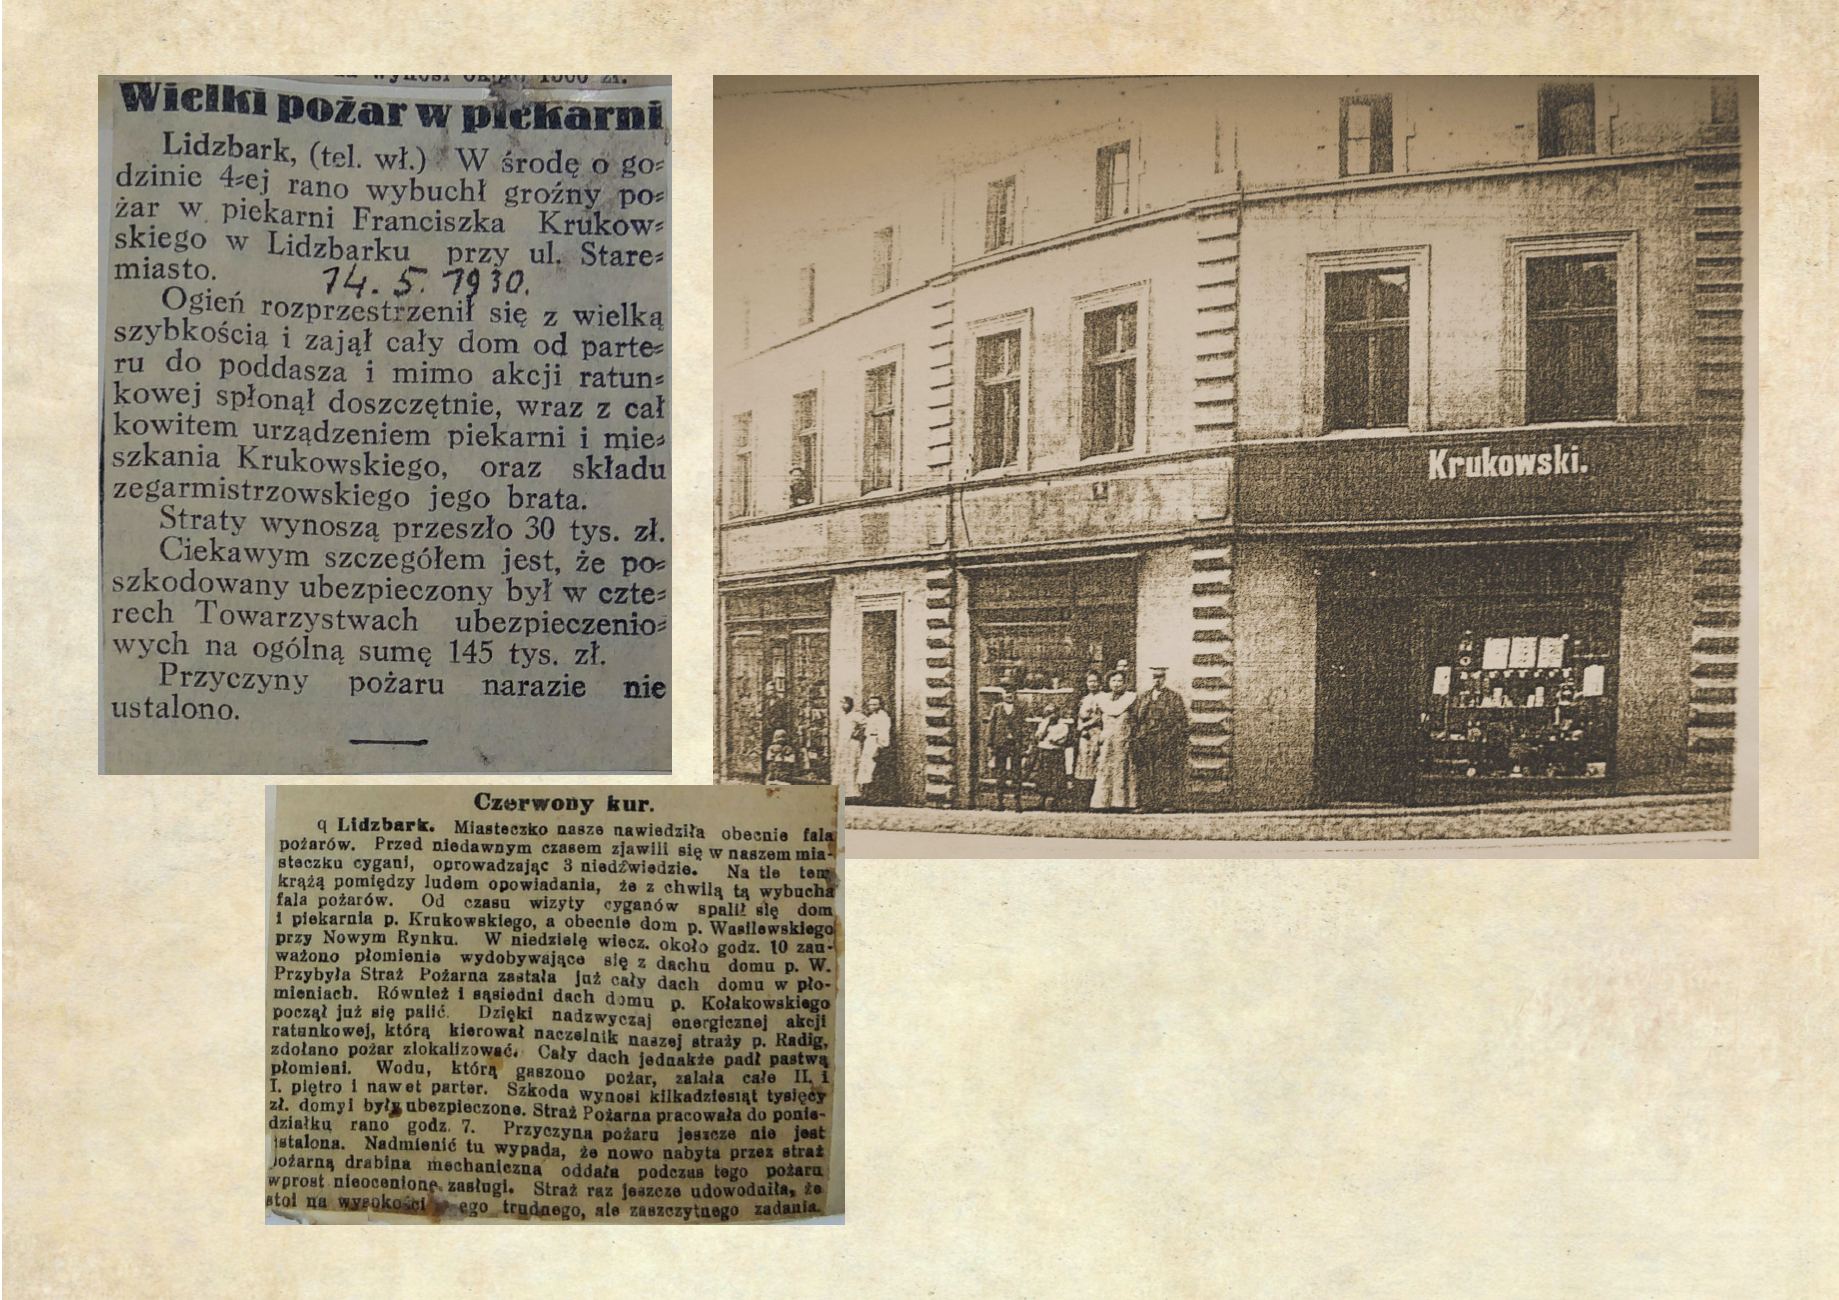 wynosi ok 1500 zł.
Wielki pożar w piekarni
Lidzbark, (tel. wł.) W środę o go-
dzinie 4-ej rano wybuchł groźny po-
żar w piekarni Franciszka Krukow-
skiego w Lidzbarku przy ul. Stare-
miasto.
14. 5. 1930.
Ogień rozprzestrzenił się z wielką
szybkością i zajął cały dom od parte-
ru do poddasza i mimo akcji ratun-
kowej spłonął doszczętnie, wraz z cał
kowitem urządzeniem piekarni i mie-
szkania Krukowskiego, oraz składu
zegarmistrzowskiego jego brata.
Straty wynoszą przeszło 30 tys. zł.
Ciekawym szczegółem jest, że po-
szkodowany ubezpieczony był w czte-
rech Towarzystwach ubezpieczenio-
wych na ogólną sumę 145 tys. zł.
Przyczyny pożaru narazie nie
ustalono.
Krukowski.
Czerwony kur.
q Lidzbark. Miasteczko nasze nawiedziła obecnie fala
pożarów. Przed niedawnym czasem zjawili się w naszem mia-
steczku cygani, oprowadzając 3 niedźwiedzie. Na tle tem
krążą pomiędzy ludem opowiadania, że z chwilą tą wybucha
fala pożarów. Od czasu wizyty cyganów spalił się dom
i piekarnia p. Krukowskiego, a obecnie dom p. Wasilewskiego
przy Nowym Rynku. W niedzielę wiecz. około godz. 10 zau-
ważono płomienie wydobywające się z dachu domu p. W.
Przybyła Straż Pożarna zastała już cały dach domu w pło-
mieniach. Również i sąsiedni dach domu p. Kołakowskiego
począł już się palić. Dzięki nadzwyczaj energicznej akcji
ratunkowej, którą kierował naczelnik naszej straży p. Radig,
zdołano pożar zlokalizować. Cały dach jednakże padł pastwą
płomieni. Wodu, którą gaszono pożar, zalała całe II. i
I. piętro i nawet parter. Szkoda wynosi kilkadziesiąt tysięcy
zł. domyi były ubezpieczone. Straż Pożarna pracowała do ponie-
działku rano godz. 7. Przyczyna pożaru jeszcze nie jest
stalona. Nadmienić tu wypada, że nowo nabyta przez straż
ożarną drabina mechaniczna oddała podczas tego pożaru
wprost nieocenione zasługi. Straż raz jeszcze udowodniła, że
stoi na wysokości ego trudnego, ale zaszczytnego zadania.